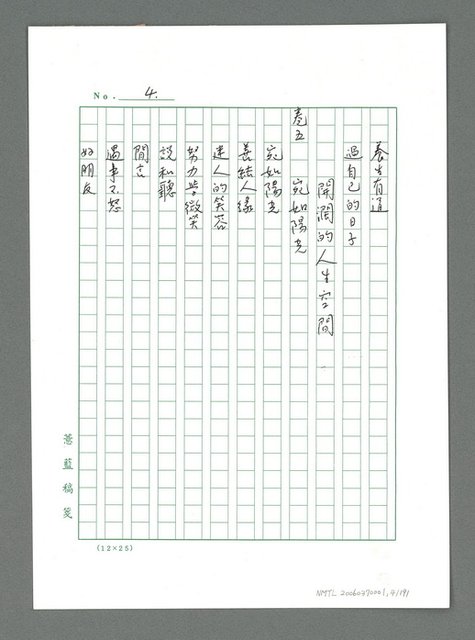 No. 4.
養生有道
過自己的日子
開濶的人生空間
卷五 宛如陽光
宛如陽光
善結人緣
迷人的笑容
努力學微笑
說和聽
閒言
遇事不怒
好朋友
薏藍稿箋
(12×25)
NMTL 20060370001, 4/191